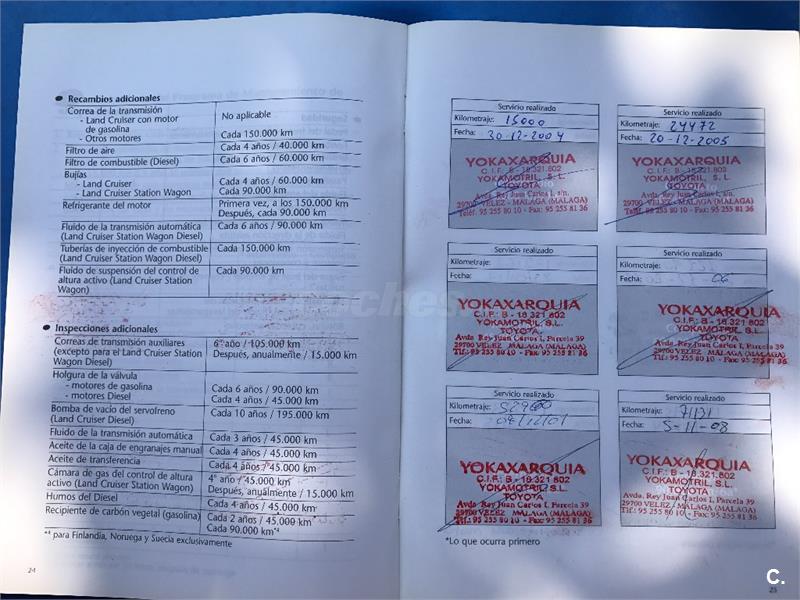 Recambios adicionales
Correa de la transmisión
- Land Cruiser con motor de gasolina
No aplicable
- Otros motores
Cada 150.000 km
Filtro de aire
Cada 4 años / 40.000 km
Filtro de combustible (Diesel)
Cada 6 años / 60.000 km
Bujías
- Land Cruiser
Cada 4 años / 60.000 km
- Land Cruiser Station Wagon
Cada 90.000 km
Refrigerante del motor
Primera vez, a los 150.000 km
Después, cada 90.000 km
Fluido de la transmisión automática
(Land Cruiser Station Wagon Diesel)
Cada 6 años / 90.000 km
Tuberías de inyección de combustible
(Land Cruiser Station Wagon Diesel)
Cada 150.000 km
Fluido de suspensión del control de
altura activo (Land Cruiser Station
Wagon)
Cada 90.000 km
Inspecciones adicionales
Correas de transmisión auxiliares
(excepto para el Land Cruiser Station
Wagon Diesel)
6º año / 105.000 km
Después, anualmente / 15.000 km
Holgura de la válvula
- motores de gasolina
Cada 6 años / 90.000 km
- motores Diesel
Cada 4 años / 45.000 km
Bomba de vacío del servofreno
(Land Cruiser Diesel)
Cada 10 años / 195.000 km
Fluido de la transmisión automática
Cada 3 años / 45.000 km
Aceite de la caja de engranajes manual
Cada 4 años / 45.000 km
Aceite de transferencia
Cada 4 años / 45.000 km
Cámara de gas del control de altura
activo (Land Cruiser Station Wagon)
4º año / 45.000 km
Después, anualmente / 15.000 km
Humos del Diesel
Cada 4 años / 45.000 km
Recipiente de carbón vegetal (gasolina)
Cada 2 años / 45.000 km
Cada 90.000 km*4
*4 para Finlandia, Noruega y Suecia exclusivamente
24
Servicio realizado
Kilometraje: 15000
Fecha: 30-12-2004
YOKAXARQUIA
C.I.F.: B - 18.321.802
YOKAMOTRIL, S. L.
TOYOTA
Avda. Rey Juan Carlos I, s/n.
29700 VELEZ - MALAGA (MALAGA)
Teléf. 95 255 80 10 - Fax: 95 255 81 36
Servicio realizado
Kilometraje: 24472
Fecha: 20-12-2005
YOKAXARQUIA
C.I.F.: B - 18.321.802
YOKAMOTRIL, S. L.
TOYOTA
Avda. Rey Juan Carlos I, s/n.
29700 VELEZ - MALAGA (MALAGA)
Teléf. 95 255 80 10 - Fax: 95 255 81 36
Servicio realizado
Kilometraje:
Fecha:
YOKAXARQUIA
C.I.F.: B - 18.321.802
YOKAMOTRIL, S.L.
TOYOTA
Avda. Rey Juan Carlos I, Parcela 39
29700 VELEZ MALAGA (MALAGA)
Tlf.: 95 255 80 10 - Fax: 95 255 81 36
Servicio realizado
Kilometraje:
06
YOKAXARQUIA
C.I.F.: B - 18.321.802
YOKAMOTRIL, S.L.
TOYOTA
Avda. Rey Juan Carlos I, Parcela 39
29700 VELEZ MALAGA (MALAGA)
Tlf.: 95 255 80 10 - Fax: 95 255 81 36
Servicio realizado
Kilometraje:
Fecha:
YOKAXARQUIA
C.I.F.: B - 18.321.802
YOKAMOTRIL, S.L.
TOYOTA
Avda. Rey Juan Carlos I, Parcela 39
29700 VELEZ MALAGA (MALAGA)
Tlf.: 95 255 80 10 - Fax: 95 255 81 36
Servicio realizado
Kilometraje: 71131
Fecha: 5-11-08
YOKAXARQUIA
C.I.F.: B - 18.321.802
YOKAMOTRIL, S.L.
TOYOTA
Avda. Rey Juan Carlos I, Parcela 39
29700 VELEZ MALAGA (MALAGA)
Tlf.: 95 255 80 10 - Fax: 95 255 81 36
*Lo que ocurra primero
25
C.